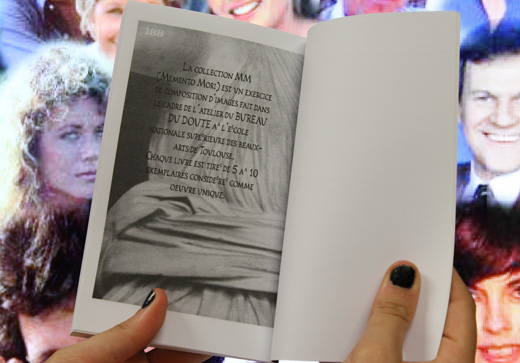 188
La collection MM
(Memento Mori) est un exercice
de composition d'images fait dans
le cadre de l'atelier du BUREAU
DU DOUTE a' l'e'cole
nationale supe'rieure des beaux-
arts de Toulouse.
Chaque livre est tire' de 5 a' 10
exemplaires conside're' comme
oeuvre unique.